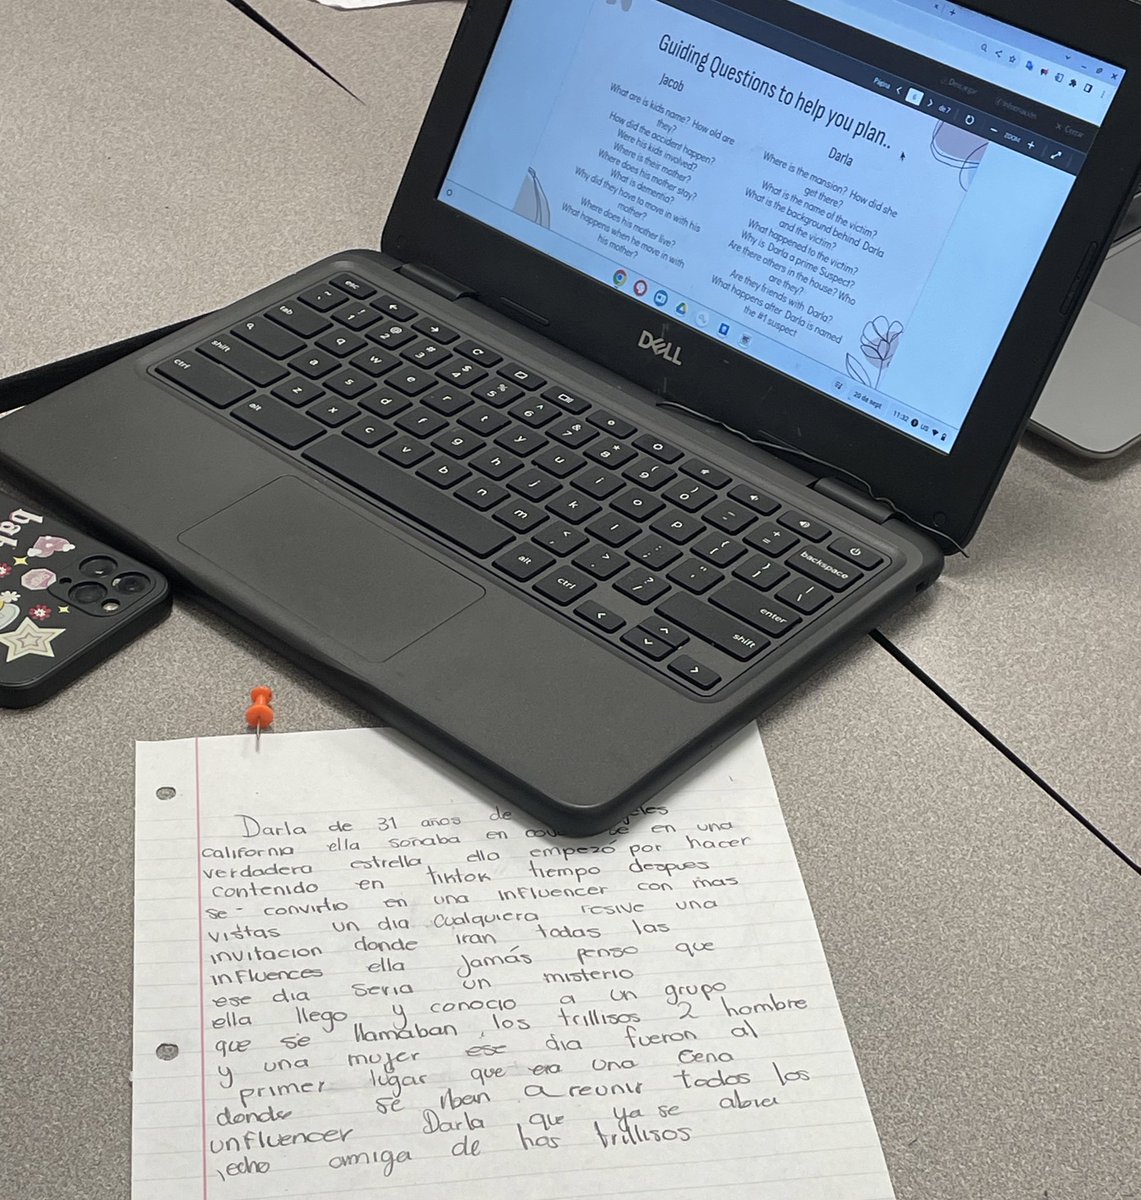 Guiding Questions to help you plan..
Jacob
What are is kids name? How old are
they?
How did the accident happen?
Were his kids involved?
Where is their mother?
Where does his mother stay?
What is dementia?
Why did they have to move in with his
mother?
Where does his mother live?
What happens when he move in with
his mother?
Darla
Where is the mansion? How did she
get there?
What is the name of the victim?
What is the background behind Darla
and the victim?
What happened to the victim?
Why is Darla a prime Suspect?
Are there others in the house? Who
are they?
Are they friends with Darla?
What happens after Darla is named
the #1 suspect
Página 6 de 7
ZOOM
Descargar
Información
Cerrar
20 de sept
11:32
US
DELL
esc
tab
shift
ctrl
alt
alt
ctrl
backspace
enter
shift
bat
Darla de 31 años de
california ella soñaba en en una
verdadera estrella ella empezó por hacer
contenido en tiktok tiempo despues
se convirtio en una influencer con mas
vistas un dia cualquiera resive una
invitacion donde iran todas las
influences ella jamás penso que
ese dia seria un misterio
ella llego y conocio a un grupo
que se llamaban los trillisos 2 hombre
y una mujer ese dia fueron al
primer lugar que era una cena
donde se iban a reunir todos los
unfluencer Darla que ya se abia
echo amiga de has trillisos